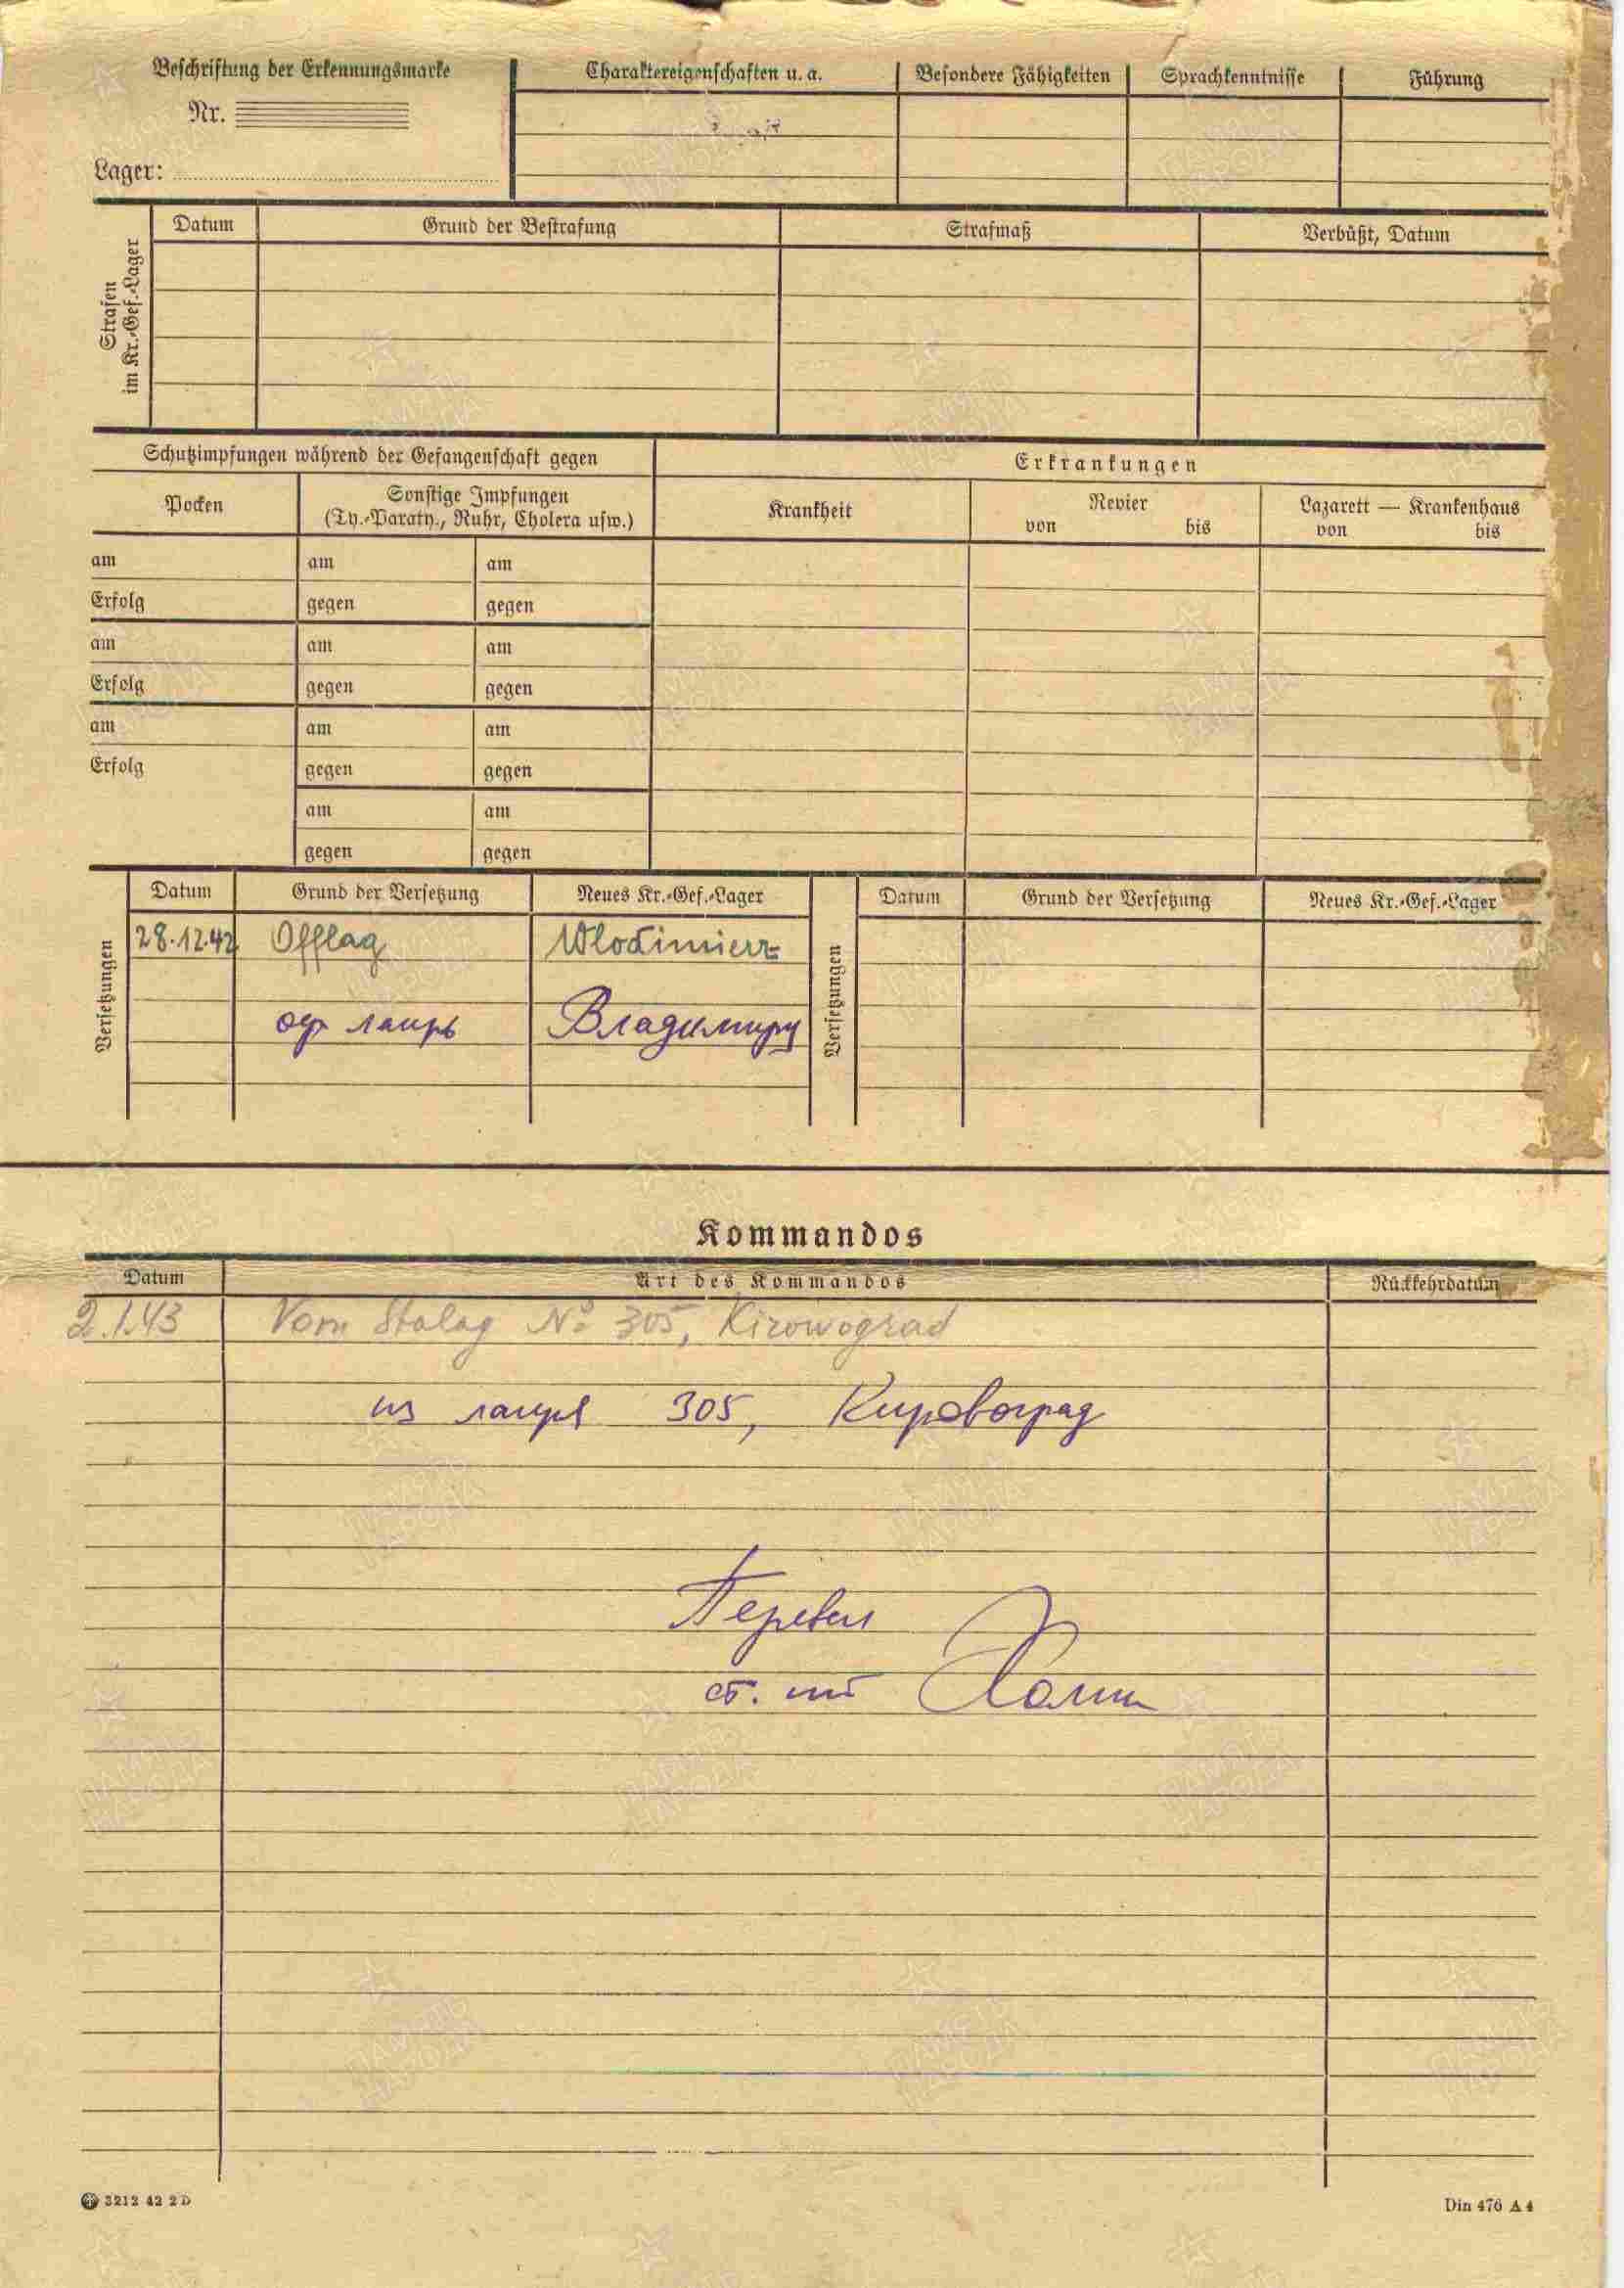 Beschriftung der Erkennungsmarke
Nr.
Lager:
Charaktereigenschaften u. a.
Besondere Fähigkeiten
Sprachkenntnisse
Führung
Strafen
im Kr.-Gef.-Lager
Datum
Grund der Bestrafung
Strafmaß
Verbüßt, Datum
Schutzimpfungen während der Gefangenschaft gegen
Erkrankungen
Pocken
Sonstige Impfungen
(Ty.-Paraty., Ruhr, Cholera usw.)
Krankheit
Revier
von bis
Lazarett — Krankenhaus
von bis
am am am
Erfolg gegen gegen
am am am
Erfolg gegen gegen
am am am
Erfolg gegen gegen
am am
gegen gegen
Versetzungen
Datum Grund der Versetzung Neues Kr.-Gef.-Lager
28.12.42 Offlag Wlodimierz
оф лагрь Владимиру
Versetzungen
Datum Grund der Versetzung Neues Kr.-Gef.-Lager
Kommandos
Datum Art des Kommandos Rückkehrdatum
2.1.43 Vom Stalag № 305, Kirowograd
из лагря 305, Кировоград
Перевел
ст. лт
3212 42 2D
Din 476 A 4
ПАМЯТЬ
НАРОДА